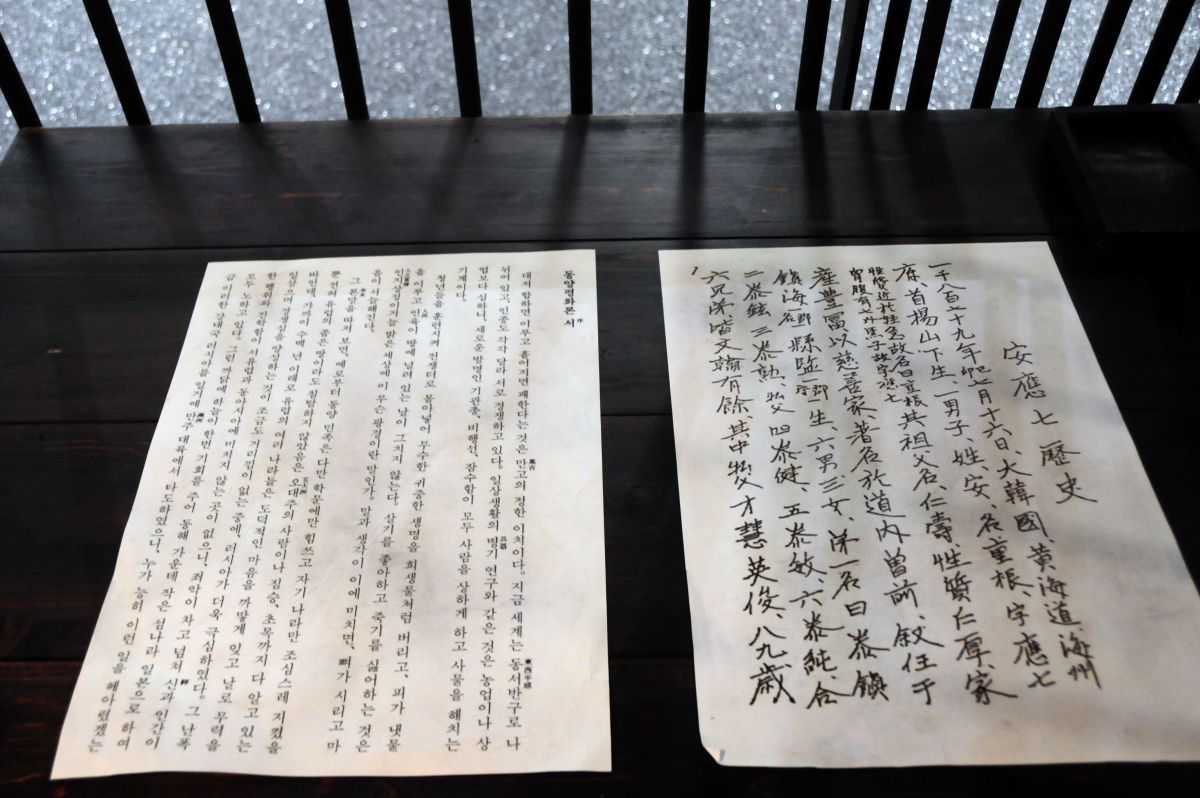 安應七歷史
一千八百七十九年己卯七月十六日、大韓國、黃海道海州
府、首楊山下生、一男子、姓、安、名重根、字應七
性質近於輕急故名曰重根
胸腹有七介黑子故字應七
其祖父名、仁壽、性質仁厚、家
產豊富以慈善家、著名於道內、曾前、敘任于
鎮海 縣監、生、六男、三女、第一名曰泰鎮
二泰鉉、三泰勳、父 四泰健、五泰敏、六泰純、合
六兄弟、皆文翰有餘、其中父才慧英俊、八九歲
동양평화론 서序
대저 합하면 이루고 흩어지면 패한다는 것은 만고萬古의 정한 이치이다. 지금 세계는 동서반구東西半球로 나
뉘어 있고, 인종도 각각 달라 서로 경쟁하고 있다. 일상생활의 병기兵器 연구와 같은 것은 농업이나 상
업보다 심하니, 새로운 발명인 기관총, 비행선, 잠수함이 모두 사람을 상하게 하고 사물을 해치는
기계이다.
청년들을 훈련시켜 전쟁터로 몰아넣어 무수한 귀중한 생명을 희생물처럼 버리고, 피가 냇물
을 이루고 인육人肉이 땅에 널려 있는 날이 그치지 않는다. 살기를 좋아하고 죽기를 싫어하는 것은
인지상정이거늘 밝은 세상에 이 무슨 광경이란 말인가. 말과 생각이 이에 미치면, 뼈가 시리고 마
음이 서늘해진다.
그 본말을 따져 보면, 예로부터 동양 민족은 다만 학문에만 힘쓰고 자기 나라만 조심스레 지켰을
뿐, 전혀 유럽의 좁은 땅이라도 침탈하지 않았음은 오대주의 사람이나 짐승, 초목까지 다 알고 있는
바인데, 가까이 백 년 이래로 유럽의 여러 나라들은 도덕적인 마음을 까맣게 잊고 날로 무력을
일삼으며 경쟁심을 양성하는 것이 조금도 거리낌이 없는 중에, 러시아가 더욱 극심하였다. 그 난폭
한 행위와 잔학함이 서유럽과 동아시아에 미치지 않는 곳이 없으니, 죄악이 차고 넘쳐 신과 인간이
모두 노하고 있다. 그런 까닭에 하늘이 한번 기회를 주어 동해 가운데 작은 섬나라 일본으로 하여
금 이런 강대국 러시아를 일거에 만주滿洲 대륙에서 타도하였으니, 누가 능히 이런 일을 헤아렸겠는